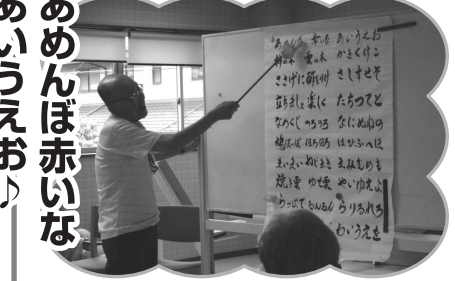 あめんぼ赤いな
あいうえお♪
あめんぼ 赤いな あいうえお
柿の木 栗の木 かきくけこ
ささげに酢をかけ さしすせそ
立ちましょ 楽しく たちつてと
なめくじ のろのろ なにぬねの
鳩ぽっぽ ほろほろ はひふへほ
まいまい ねじまき まみむめも
焼き栗 ゆで栗 やいゆえよ
らっぱで るんるん らりるれろ
わいうえを